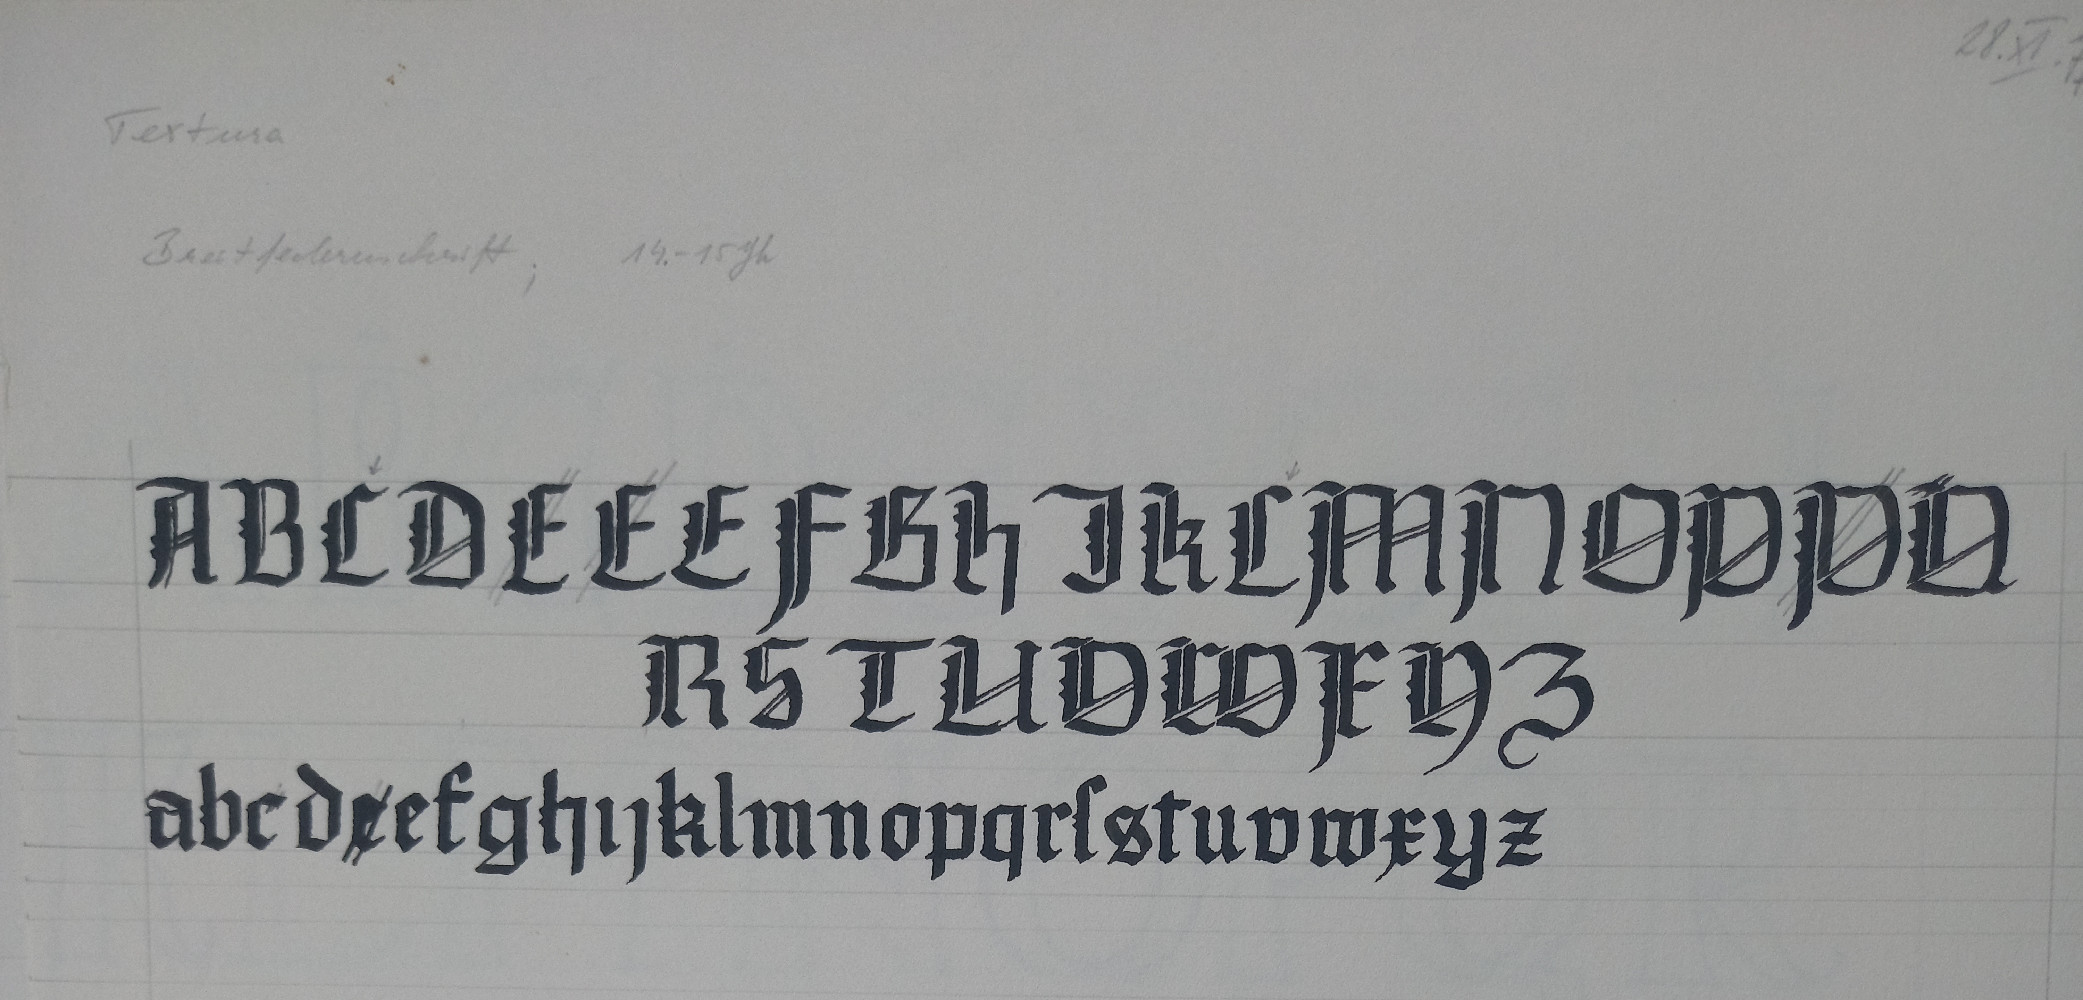 28.XI.
Textura
Breitfedernschrift; 14.-15 Jh
A B C D E E E F G H I K L M N O P P Q
R S T U V W X Y Z
a b c d e e f g h i j k l m n o p q r ſ s t u v w x y z